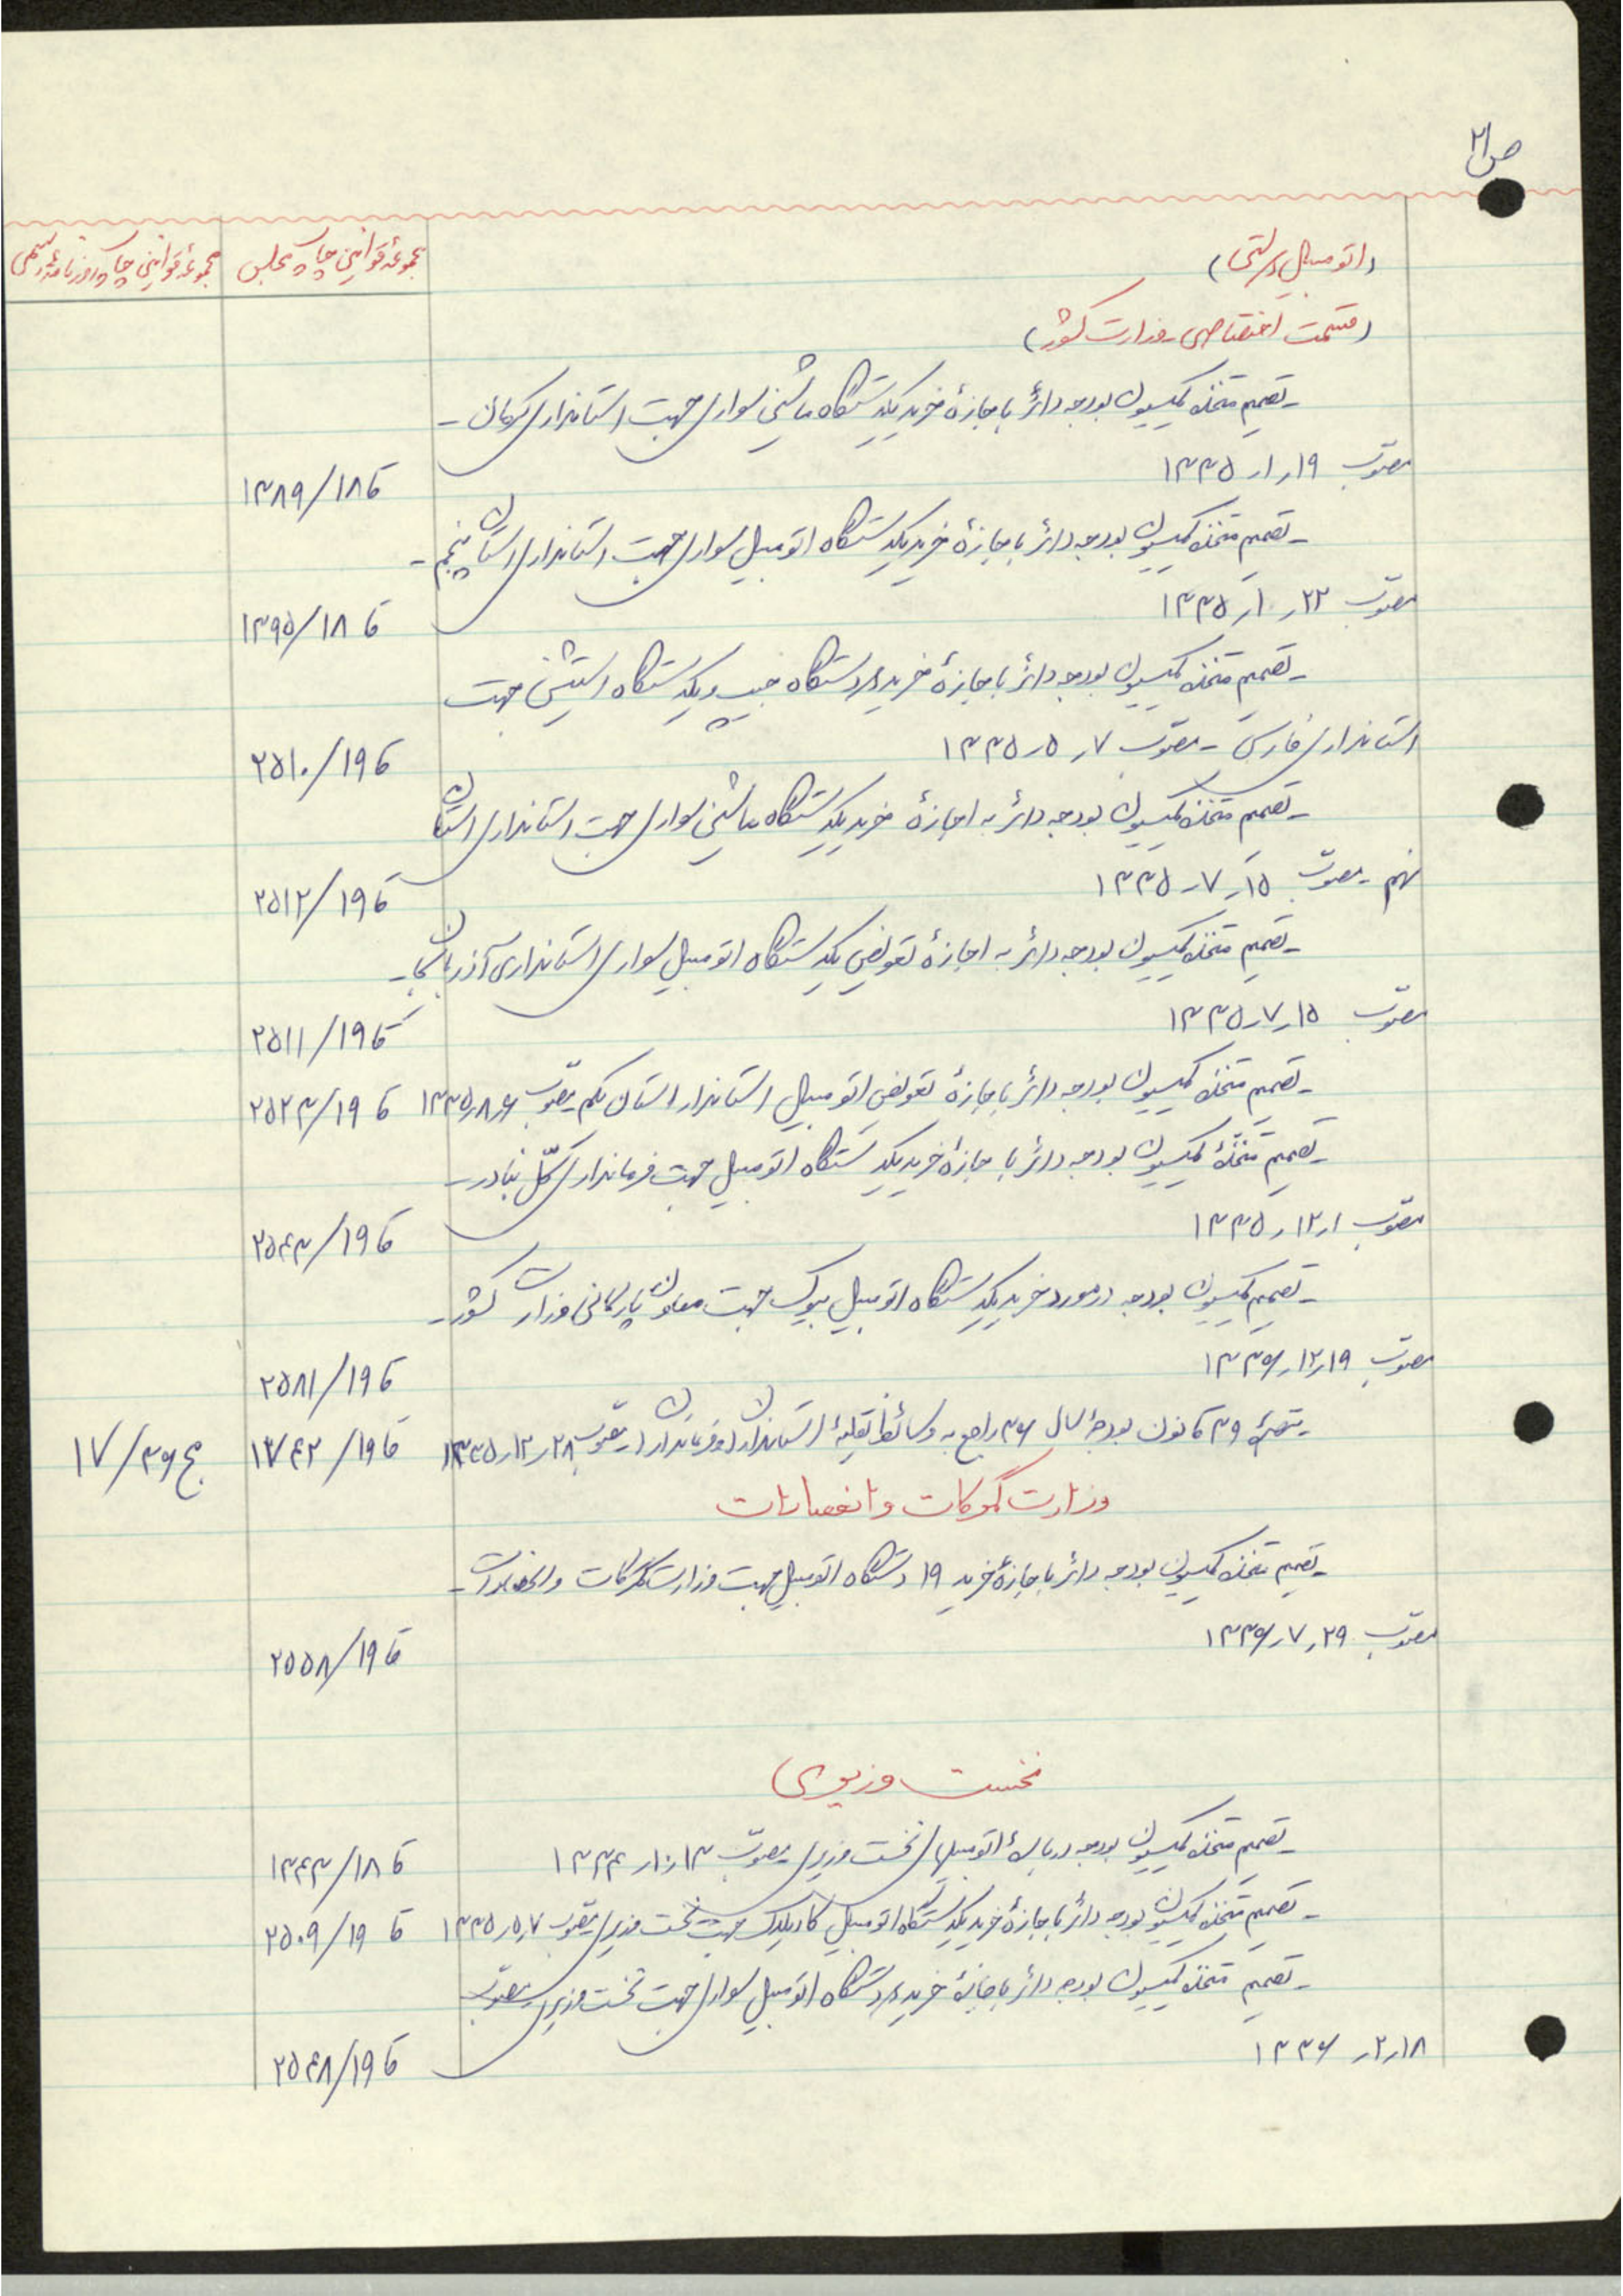 ص۲۱
(اتومبیل دولتی)
مجموعهٔ قوانین چاپ مجلس
مجموعهٔ قوانین چاپ روزنامهٔ رسمی
(قسمت اختصاصی وزارت کشور)
- تصمیم متخذه کمیسیون بودجه دائر باجازهٔ خرید یکدستگاه ماشین سواری جهت استانداری کرمان -
مصوّب ۱۹ر۱ر۱۳۳۵
قا ۱۳۸۹/۱۸
- تصمیم متخذه کمیسیون بودجه دائر باجازهٔ خرید یکدستگاه اتومبیل سواری جهت استانداری استان پنجم -
مصوّب ۲۳ر۱ر۱۳۳۵
قا ۱۳۹۵/۱۸
- تصمیم متخذه کمیسیون بودجه دائر باجازهٔ خرید دو دستگاه جیپ و یکدستگاه استیشن جهت
استانداری فارس - مصوّب ۷ر۵ر۱۳۳۵
قا ۲۵۱۰/۱۹
- تصمیم متخذه کمیسیون بودجه دائر به اجازهٔ خرید یکدستگاه ماشین سواری جهت استانداری استان
نهم - مصوّب ۱۵ر۷ر۱۳۳۵
قا ۲۵۱۲/۱۹
- تصمیم متخذه کمیسیون بودجه دائر به اجازهٔ تعویض یکدستگاه اتومبیل سواری استانداری آذربایجان -
مصوّب ۱۵ر۷ر۱۳۳۵
قا ۲۵۱۱/۱۹
- تصمیم متخذه کمیسیون بودجه دائر باجازهٔ تعویض اتومبیل استاندار استان یکم مصوّب ۶ر۸ر۱۳۳۵
قا ۲۵۲۳/۱۹
- تصمیم متخذهٔ کمیسیون بودجه دائر باجازهٔ خرید یکدستگاه اتومبیل جهت فرمانداری کلّ بنادر -
مصوّب ۱ر۱۲ر۱۳۳۵
قا ۲۵۴۳/۱۹
- تصمیم کمیسیون بودجه در مورد خرید یکدستگاه اتومبیل بیوک جهت معاون پارلمانی وزارت کشور -
مصوّب ۱۹ر۱۲ر۱۳۳۶
قا ۲۵۸۱/۱۹
- تبصرهٔ ۳۹ قانون بودجهٔ سال ۳۶ راجع به وسائط نقلیهٔ استانداران و فرمانداران - مصوّب ۲۸ر۱۲ر۱۳۳۵
قا ۱۷۴۲/۱۹
مج ۱۷/۳۶
وزارت گمرکات و انحصارات
- تصمیم متخذه کمیسیون بودجه دائر باجازهٔ خرید ۱۹ دستگاه اتومبیل جهت وزارت گمرکات و انحصارات -
مصوّب ۲۹ر۷ر۱۳۳۶
قا ۲۵۵۸/۱۹
نخست وزیری
- تصمیم متخذه کمیسیون بودجه دربارهٔ اتومبیلهای نخست وزیری مصوّب ۱۳ر۱۰ر۱۳۳۴
قا ۱۳۴۳/۱۸
- تصمیم متخذه کمیسیون بودجه دائر باجازهٔ خرید یکدستگاه اتومبیل کادیلاک جهت نخست وزیری مصوّب ۷ر۵ر۱۳۳۵
قا ۲۵۰۹/۱۹
- تصمیم متخذه کمیسیون بودجه دائر باجازهٔ خرید دو دستگاه اتومبیل سواری جهت نخست وزیری - مصوّب
۱۸ر۲ر۱۳۳۶
قا ۲۵۴۸/۱۹